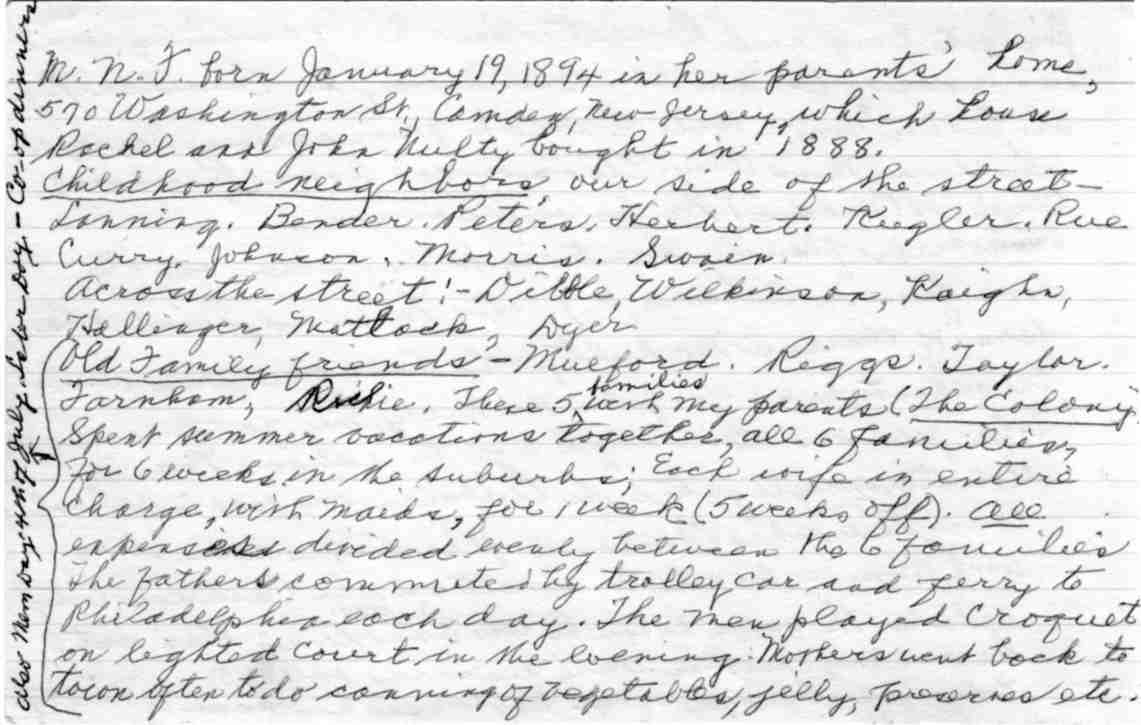 M. N. T. born January 19, 1894 in her parents' home,
570 Washington St., Camden, New Jersey, which house
Rachel and John Nulty bought in 1888.
Childhood neighbors, our side of the street-
Lanning. Bender. Peters. Herbert. Kegler. Rue
Curry. Johnson. Morris. Swain.
Across the street:- Dibble, Wilkinson, Kaighn,
Hollinger, Mattack, Dyer
Old Family friends - Mulford. Riggs. Taylor.
Farnham, Richie. These 5 families with my parents (The Colony)
Spent summer vacations together, all 6 families,
for 6 weeks in the suburbs; Each wife in entire
charge, with maids, for 1 week (5 weeks off). All
expenses divided evenly between the 6 families
The fathers commuted by trolley car and ferry to
Philadelphia each day. The men played Croquet
on lighted court in the evening. Mothers went back to
town often to do canning of vegetables, jelly, preserves etc.
also Mem Day. 4th of July. Labor Day - Co-op dinners